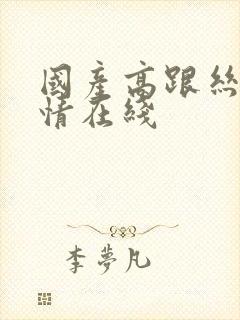 國產高跟絲
情在綫
李夢凡